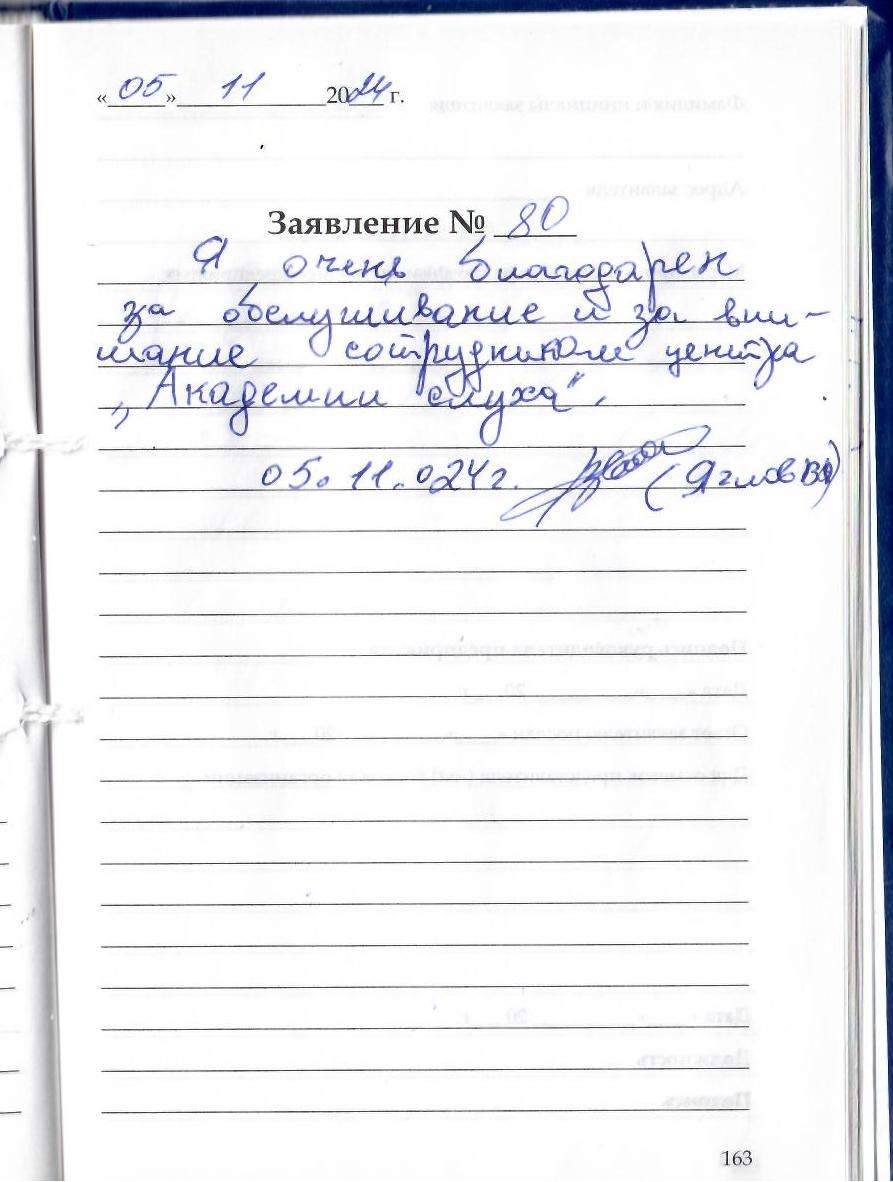 «05» 11 2024 г.
Заявление № 80
Я очень благодарен
за обслуживание и за вни-
мание сотрудникам центра
„Академии слуха".
05.11.024г. (Яглов ВА)
163